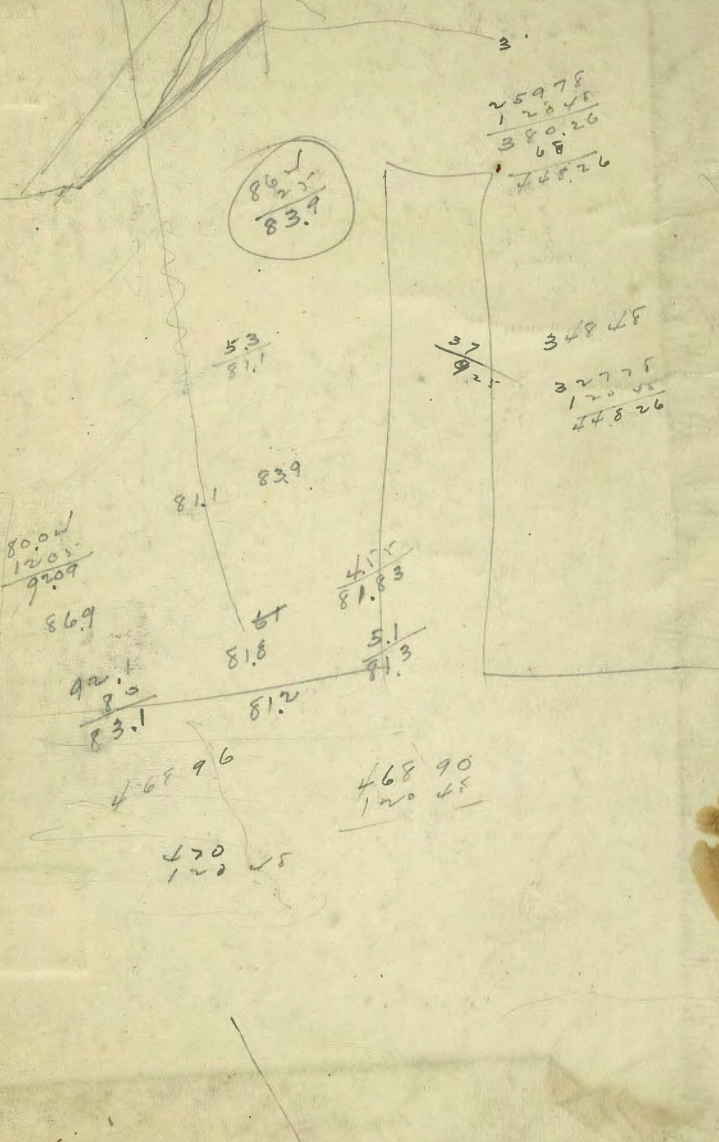 3
25978
12048
380.26
68
448.26
86.4
25
83.9
5.3
81.1
37
9
25
348 48
32778
120 48
448 26
83.9
81.1
80.04
12 05
92.09
4.55
81.83
86.9
61
81.8
5.1
81.3
92.1
83.1
81.2
468 96
468 90
120 48
470
120 48